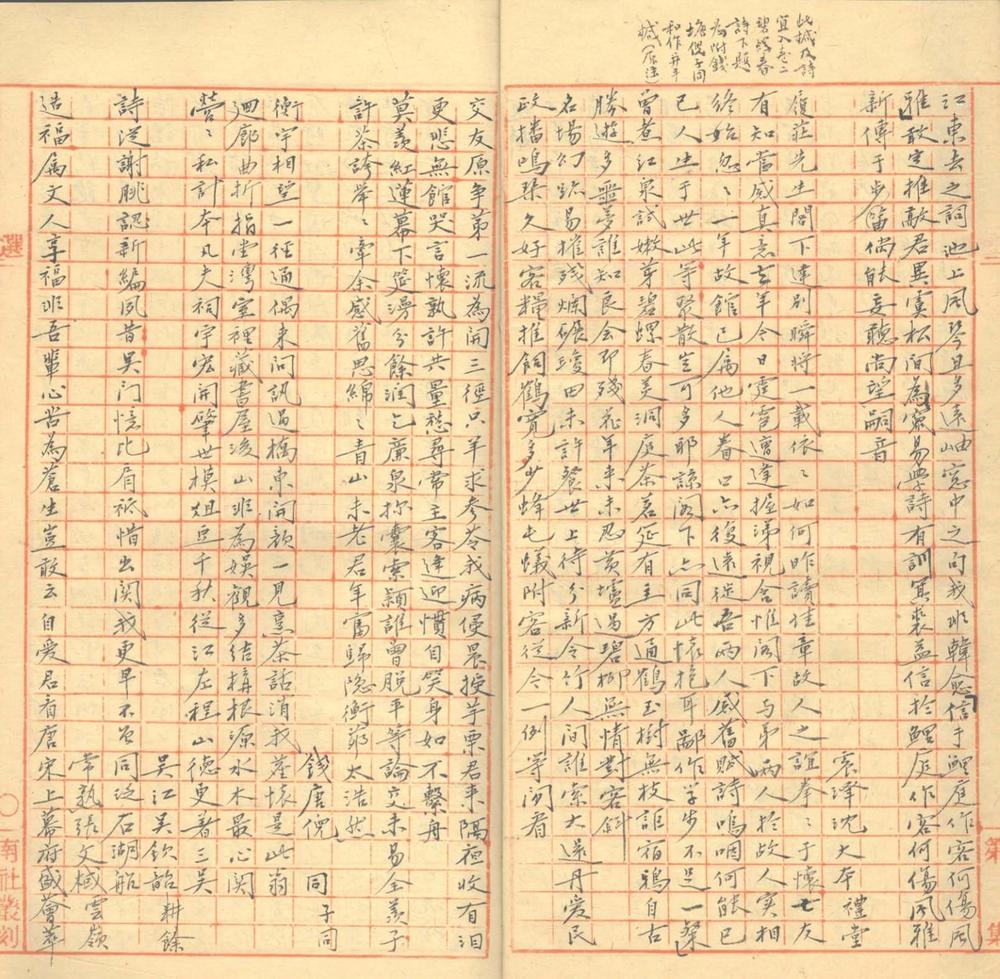 此椷及詩
宜入卷二
碧螺春
詩下題
為附錢
塘倪子同
和作另手
椷
江東去之詞池上風琴且多遠岫窓中之句我非韓愈信于鯉庭作客何傷風
雅敢定推敲君異虞松間為竄易學詩有訓冥裘益信於鯉庭作客何傷風雅
新傳于步笛偶能妄聽尚望嗣音
沈大本禮堂
履莊先生閣下違別瞬將一載依依如何昨讀佳章故人之誼拳拳于懷亡友
有知當感真意去年今日霓雲遭達握涕視含惟閣下与弟兩人於故人實相
終始忽忽一年故館已屬他人眷口亦復遠徙吾兩人感舊賦詩嗚咽何能已
已人生于世此等聚散豈可多耶諒閣下亦同此懷抱耳鄙作学步不足一粲
曾煮江泉試嫩芽碧螺春美洞庭茶茗筵有主方通鶴玉樹無枝詎宿鴉自古
勝遊多噩夢誰知良会即殘花年來未忍黃壚過碧柳無情對客斜
名場幻跡易摧殘爛碾瓊田未許餐世上待分新令竹人間誰索大還丹愛民
政播鳴琴久好客糧推飼鶴寬多少蜂屯蟻附客從今一例等閒看
交友原爭第一流為開三徑只羊求參苓我病便晨授芋栗君來隔夜收有淚
更悲無館哭言懷孰許共量愁尋常主客逢迎慣自笑身如不繫舟
莫羨紅蓮幕下筵漫分餘潤乞廉泉抄囊索穎誰曾脫平等論交未易全羨子
許茶誇犖犖牽余感舊思綿綿青山未老君年富歸隐衡茆太浩然
錢唐倪 同子同
衡宇相望一徑通偶來問訊過橋東開顏一見烹茶話消我塵懷是此翁
迴廊曲折指堂灣室裡藏書屋後山非為娛觀多結構根源水木最心関
營營私計本凡夫祠宇宏開肇世模俎豆千秋從江左程山德更著三吳
吳江吳欽韶耕餘
詩从謝朓認新編夙昔吳門憶比肩祇惜出関我更早不曾同泛石湖船
常熟張文棫雲嶺
造福屬文人享福非吾輩心苦為蒼生豈敢云自愛君看唐宋上幕府盛薈萃
選
南社叢刻
第
集